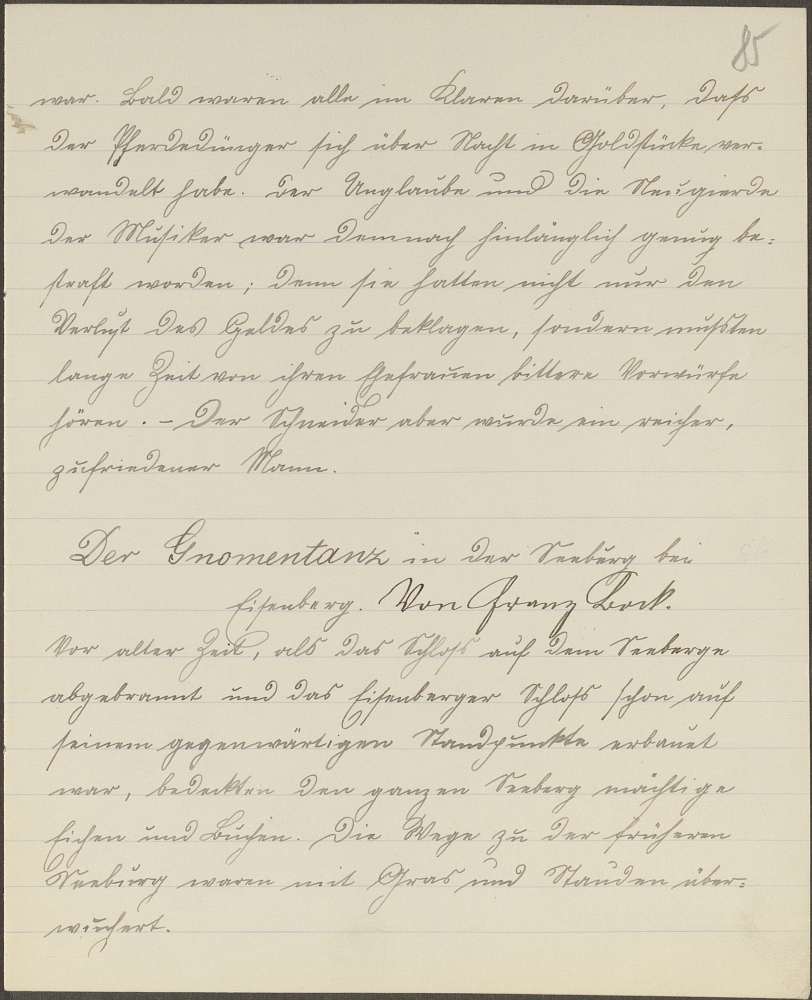 85
war. Bald waren alle im Klaren darüber, dass
der Pferdedünger sich über Nacht in Goldstücke ver-
wandelt habe. Der Unglaube und die Neugierde
der Musiker war demnach hinlänglich genug be-
straft worden; denn sie hatten nicht nur den
Verlust des Geldes zu beklagen, sondern mussten
lange Zeit von ihren Ehefrauen bittere Vorwürfe
hören. – Der Schneider aber wurde ein reicher,
zufriedener Mann.
Der Gnomentanz in der Seeburg bei
Eisenberg. Von Franz Bock.
Vor alter Zeit, als das Schloss auf dem Seeberge
abgebrannt und das Eisenberger Schloss schon auf
seinem gegenwärtigen Standpunkte erbauet
war, bedeckten den ganzen Seeberg mächtige
Eichen und Buchen. Die Wege zu der früheren
Seeburg waren mit Gras und Stauden über-
wuchert.